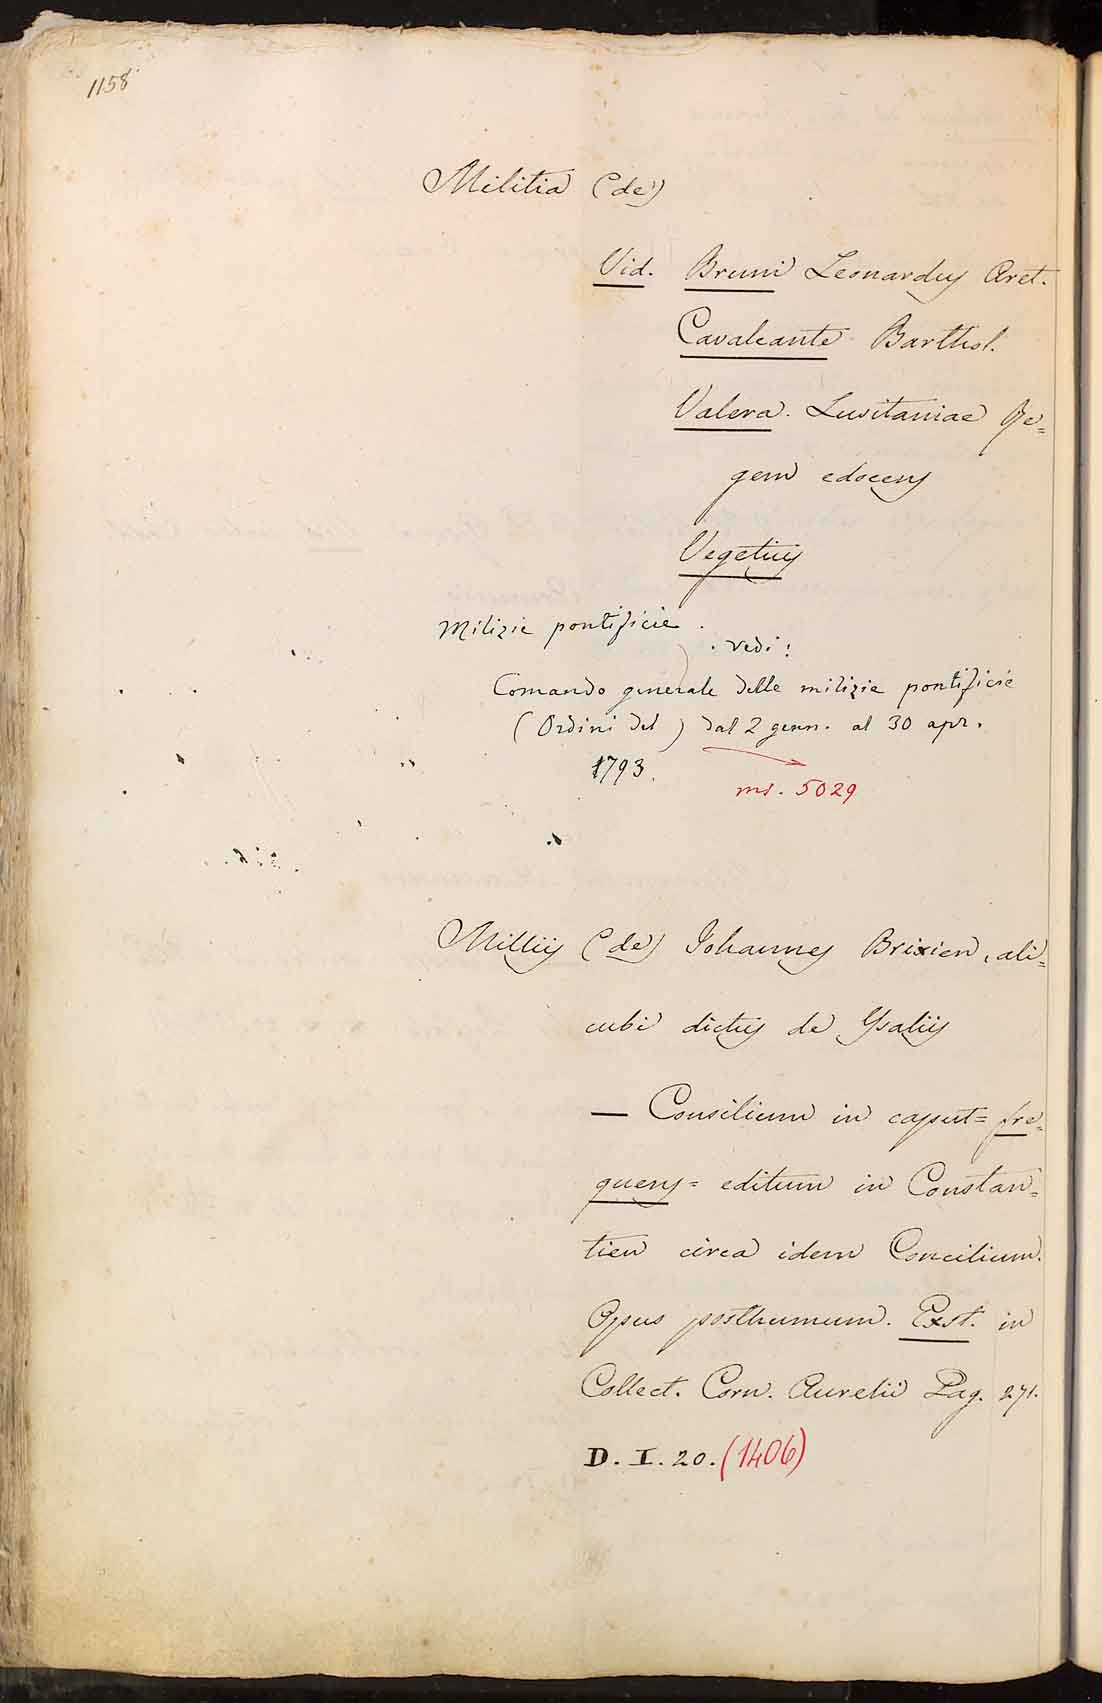 1158
Militia (de)
Vid. Bruni Leonardus Aret.
Cavalcante Barthol.
Valera. Lusitaniae Re=
gem edocens
Vegetius
Milizie pontificie.
vedi:
Comando generale delle milizie pontificie
(Ordini del) dal 2 genn. al 30 apr.
1793.
ms. 5029
Millijs (de) Johannes Brixien, ali=
cubi dictus de Ysalijs
— Consilium in caput = fre=
quens = editum in Constan=
tien circa idem Concilium.
Opus posthumum. Exst. in
Collect. Corn. Aurelii Pag. 271.
D. I. 20. (1406)